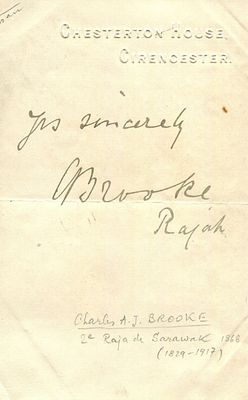 CHESTERTON HOUSE,
CIRENCESTER.
Yrs sincerely
CBrooke
Rajah
Charles A.J. BROOKE
2e Raja de Sarawak 1868
(1829-1917)